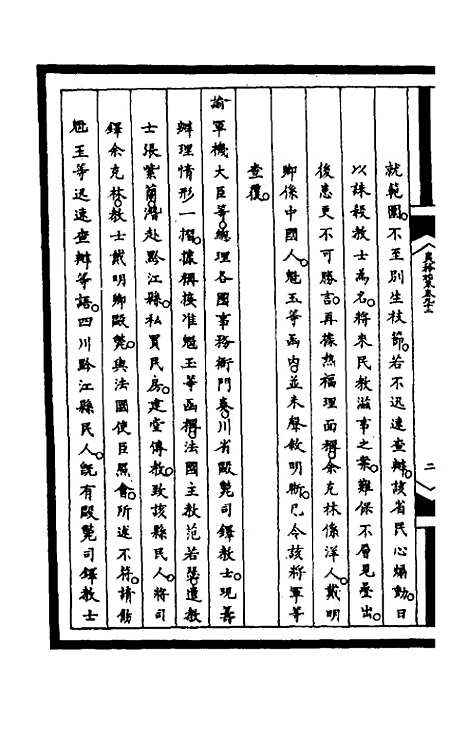 就範圍不至別生枝節若不迅速查辦該省民心煽動日
以誅殺教士為名將來民教滋事之案難保不層見疊出
後患更不可勝言再據熱福理面稱余克林係洋人戴明
卿係中國人魁玉等函內並未聲敘明晰已令該將軍等
查覆
諭軍機大臣等總理各國事務衙門奏川省毆斃司鐸教士現籌
辦理情形一摺據稱接准魁玉等函稱法國主教范若瑟遣教
士張紫蘭潛赴黔江縣私買民房建堂傳教致該縣民人將司
鐸余克林教士戴明卿毆斃與法國使臣照會所述不符請飭
魁玉等迅速查辦等語四川黔江縣民人既有毆斃司鐸教士
二